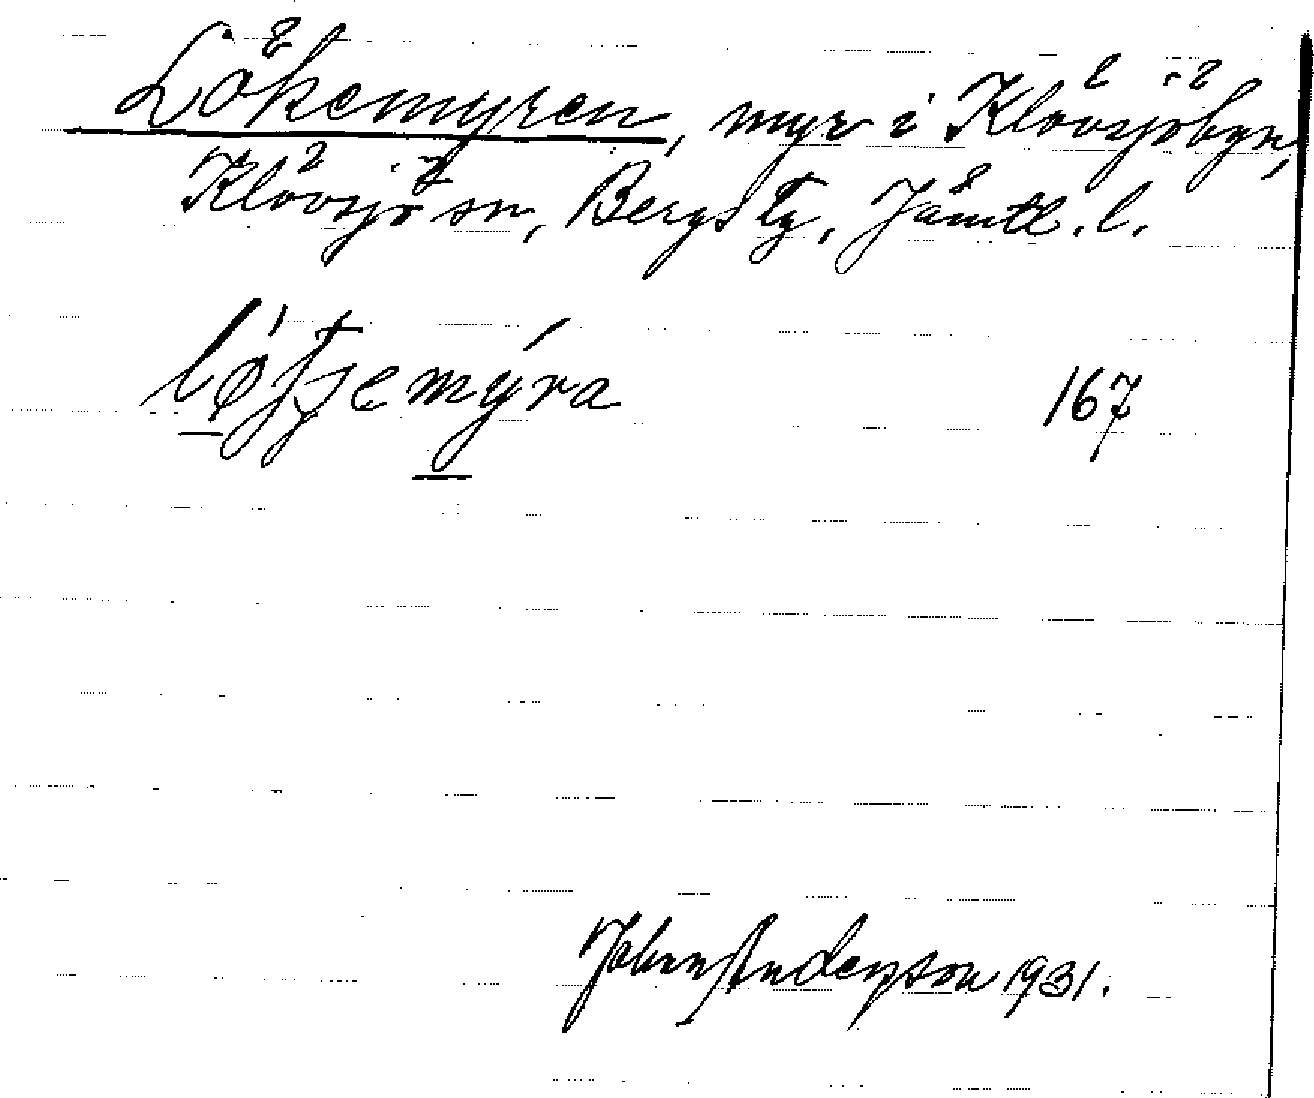 Lökemyren, myr i Klövsjöbyn,
Klövsjö sn, Bergs tg, Jämtl. l.
167
Johan Anderson 1931.